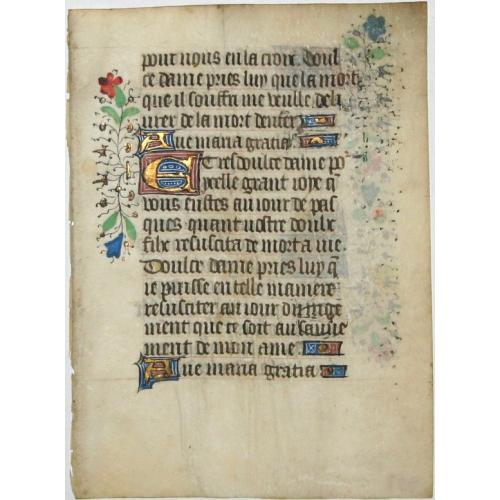 pour nous en la croix. Doul
ce dame pries luy que la mort
que il souffri me veulle deli
urer de la mort denfer
Aue maria gratia
Et tres doulce dame po
celle grant ioye q̄
vous eustes au iour de pas
ques quant vostre doulz
filz resuscita de mort a vie
Doulce dame pries luy q̄
ie puisse en telle maniere
resusciter au iour du iuge
ment que ce soit au sauue
ment de mon ame.
Aue maria gratia